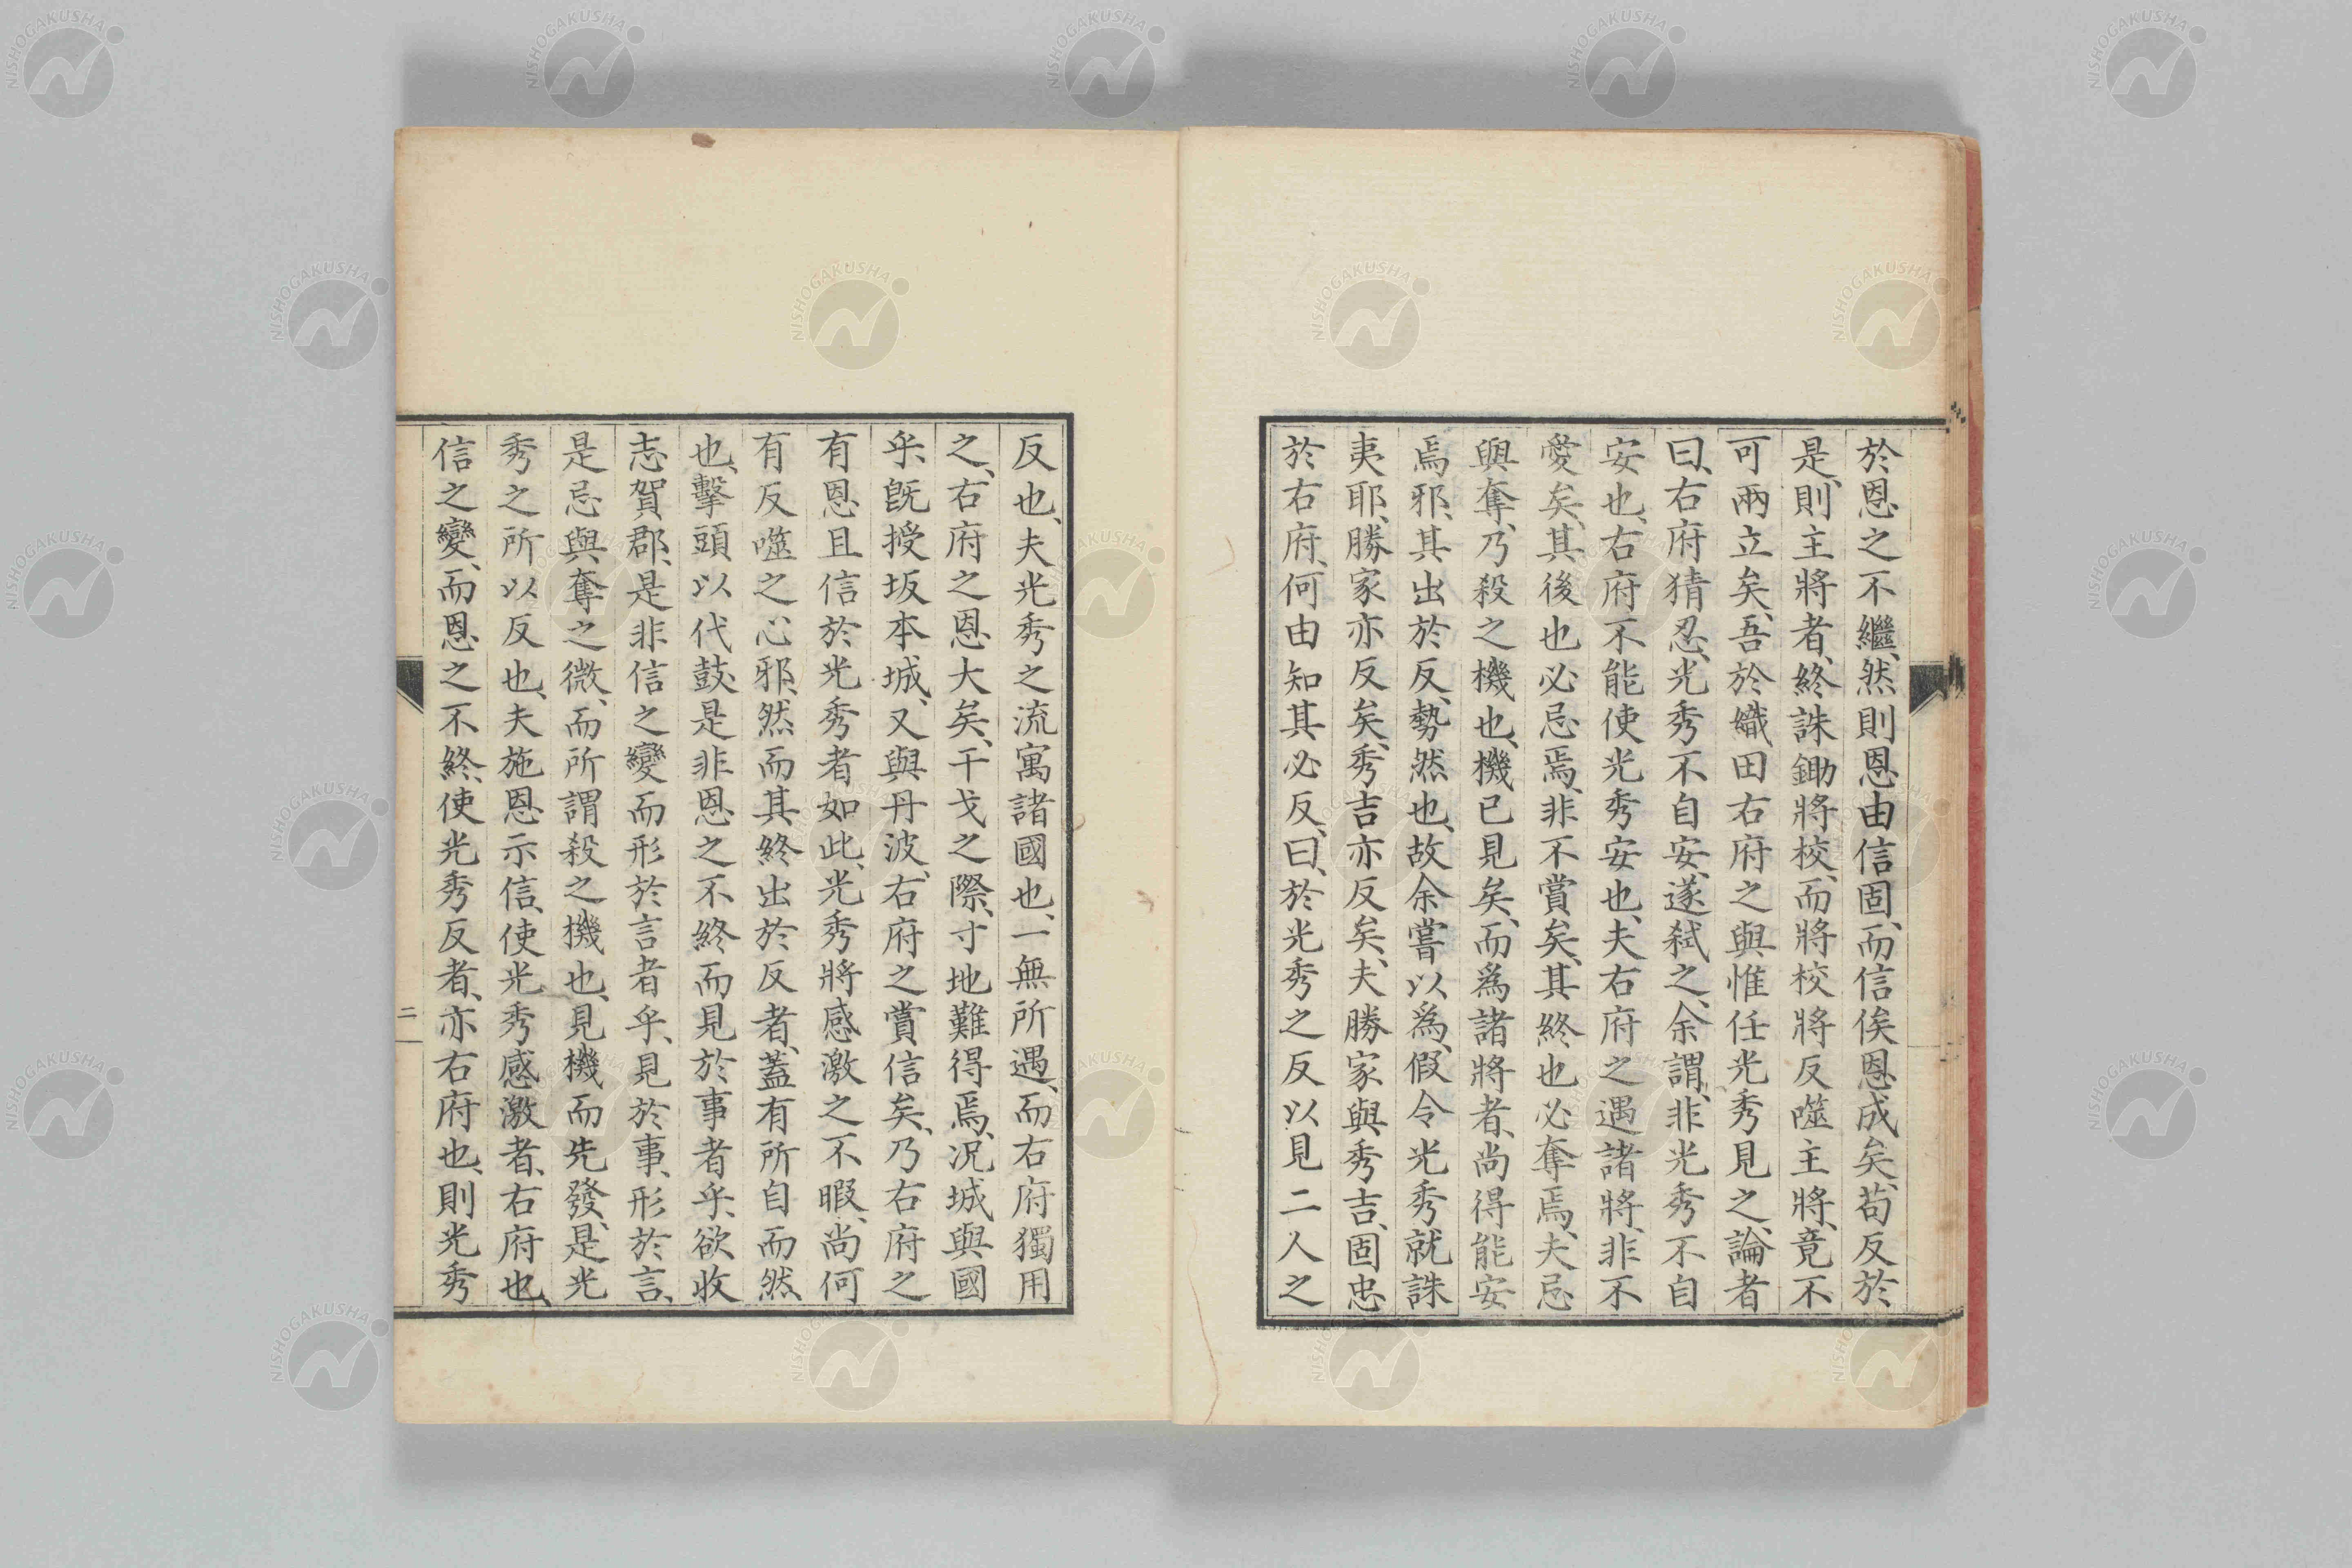 於恩之不繼、然則恩由信固、而信俟恩成矣、苟反於
是、則主將者、終誅鋤將校、而將校將反噬主將、竟不
可兩立矣、吾於織田右府之與惟任光秀見之、論者
曰、右府猜忍、光秀不自安、遂弑之、余謂、非光秀不自
安也、右府不能使光秀安也、夫右府之遇諸將、非不
愛矣、其後也必忌焉、非不賞矣、其終也必奪焉、夫忌
與奪、乃殺之機也、機已見矣、而爲諸將者、尚得能安
焉邪、其出於反、勢然也、故余嘗以爲、假令光秀就誅
夷耶、勝家亦反矣、秀吉亦反矣、夫勝家與秀吉、固忠
於右府、何由知其必反、曰、於光秀之反以見二人之
反也、夫光秀之流寓諸國也、一無所遇、而右府獨用
之、右府之恩大矣、干戈之際、寸地難得焉、況城與國
乎、既授坂本城、又與丹波、右府之賞信矣、乃右府之
有恩且信於光秀者如此、光秀將感激之不暇、尚何
有反噬之心邪、然而其終出於反者、蓋有所自而然
也、擊頭以代鼓、是非恩之不終而見於事者乎、欲收
志賀郡、是非信之變而形於言者乎、見於事、形於言、
是忌與奪之微、而所謂殺之機也、見機而先發、是光
秀之所以反也、夫施恩示信、使光秀感激者、右府也、
信之變、而恩之不終、使光秀反者、亦右府也、則光秀
二
NISHOGAKUSHA